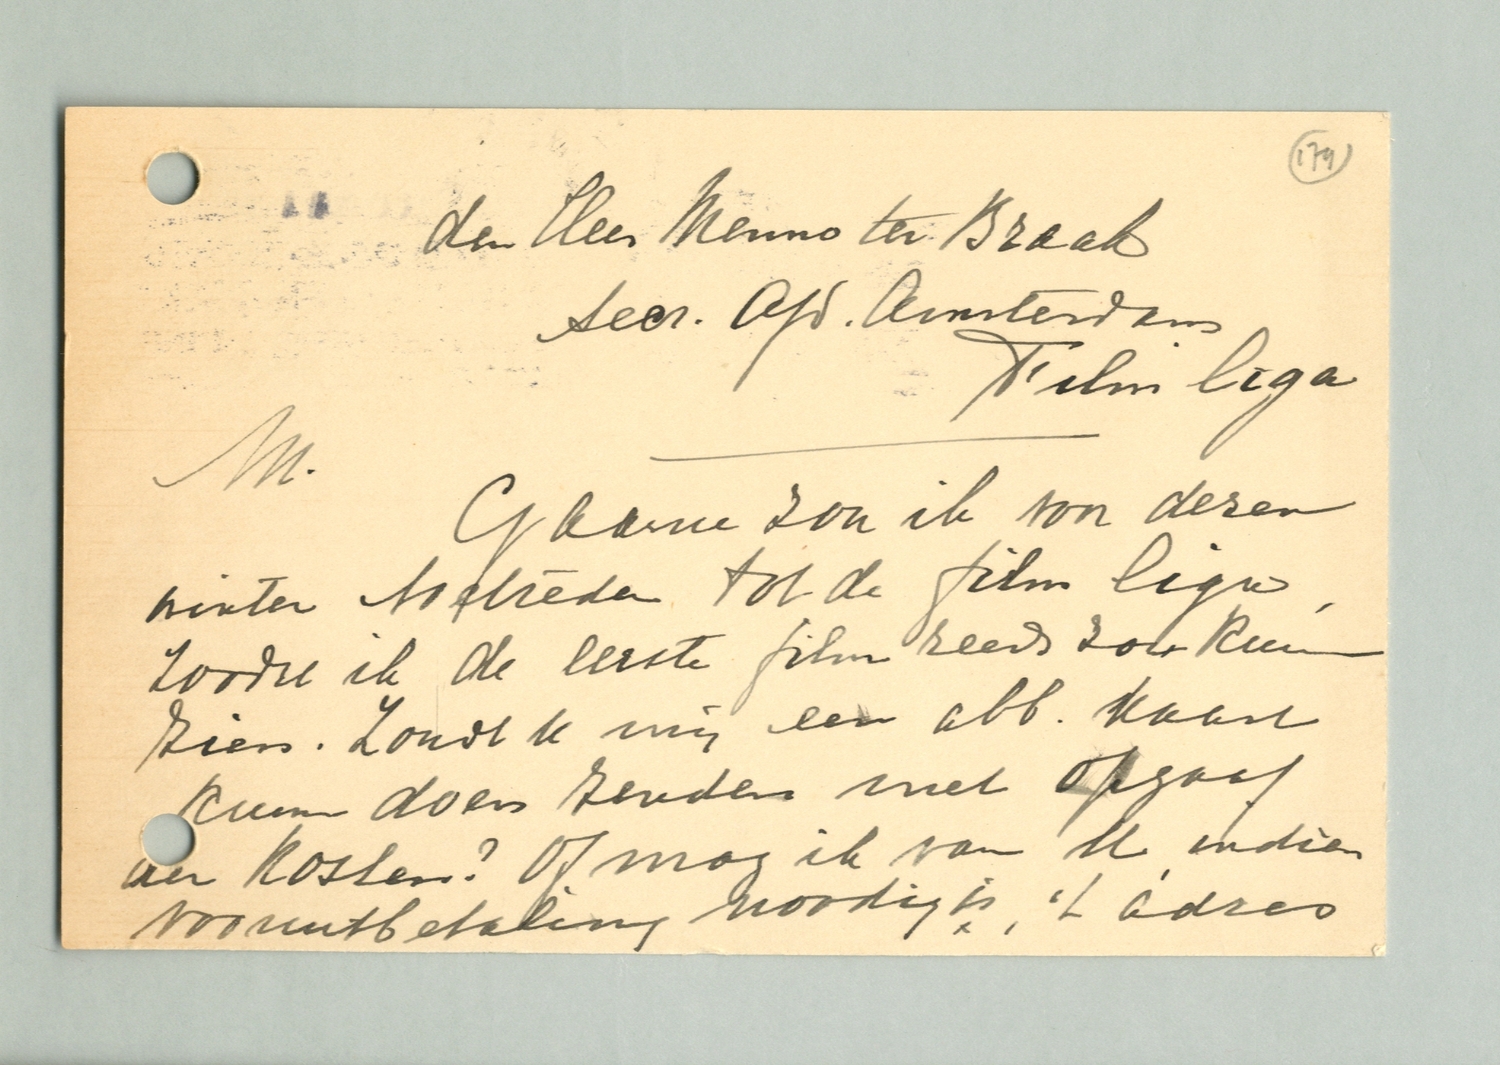 179
den Heer Menno ter Braak
secr. Afd. Amsterdam
Film liga
M.
Gaarne zou ik voor dezen
winter toetreden tot de film liga,
zoodat ik de eerste film reeds zou kunn
zien. Zoudt U mij een abb. kaart
kunn doen zenden met opgaaf
der kosten? Of mag ik van U indien
vooruitbetaling noodig is, 't adres